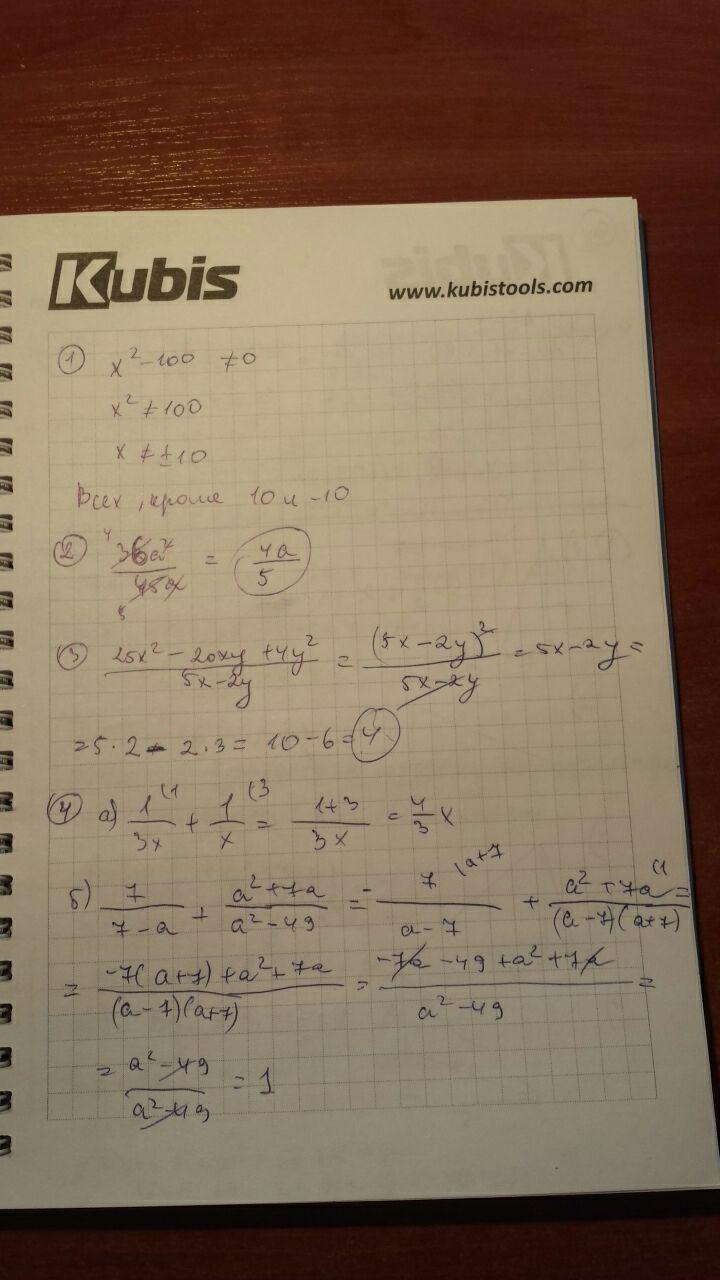 Kubis
www.kubistools.com
① x² - 100 ≠ 0
x² ≠ 100
x ≠ ±10
Всех, кроме 10 и -10
② 36a²/45a = 4a/5
③ (25x² - 20xy + 4y²)/(5x - 2y) = (5x - 2y)²/(5x - 2y) = 5x - 2y =
= 5·2 - 2·3 = 10 - 6 = 4
④ а) 1/3x (1 + 1/x (3 = (1+3)/3x = 4/3 x
б) 7/(7 - a) + (a² + 7a)/(a² - 49) = - 7/(a - 7) (a+7 + (a² + 7a)/((a - 7)(a+7)) (1 =
= (-7(a+7) + a² + 7a)/((a - 7)(a+7)) = (-7a - 49 + a² + 7a)/(a² - 49) =
= (a² - 49)/(a² - 49) = 1